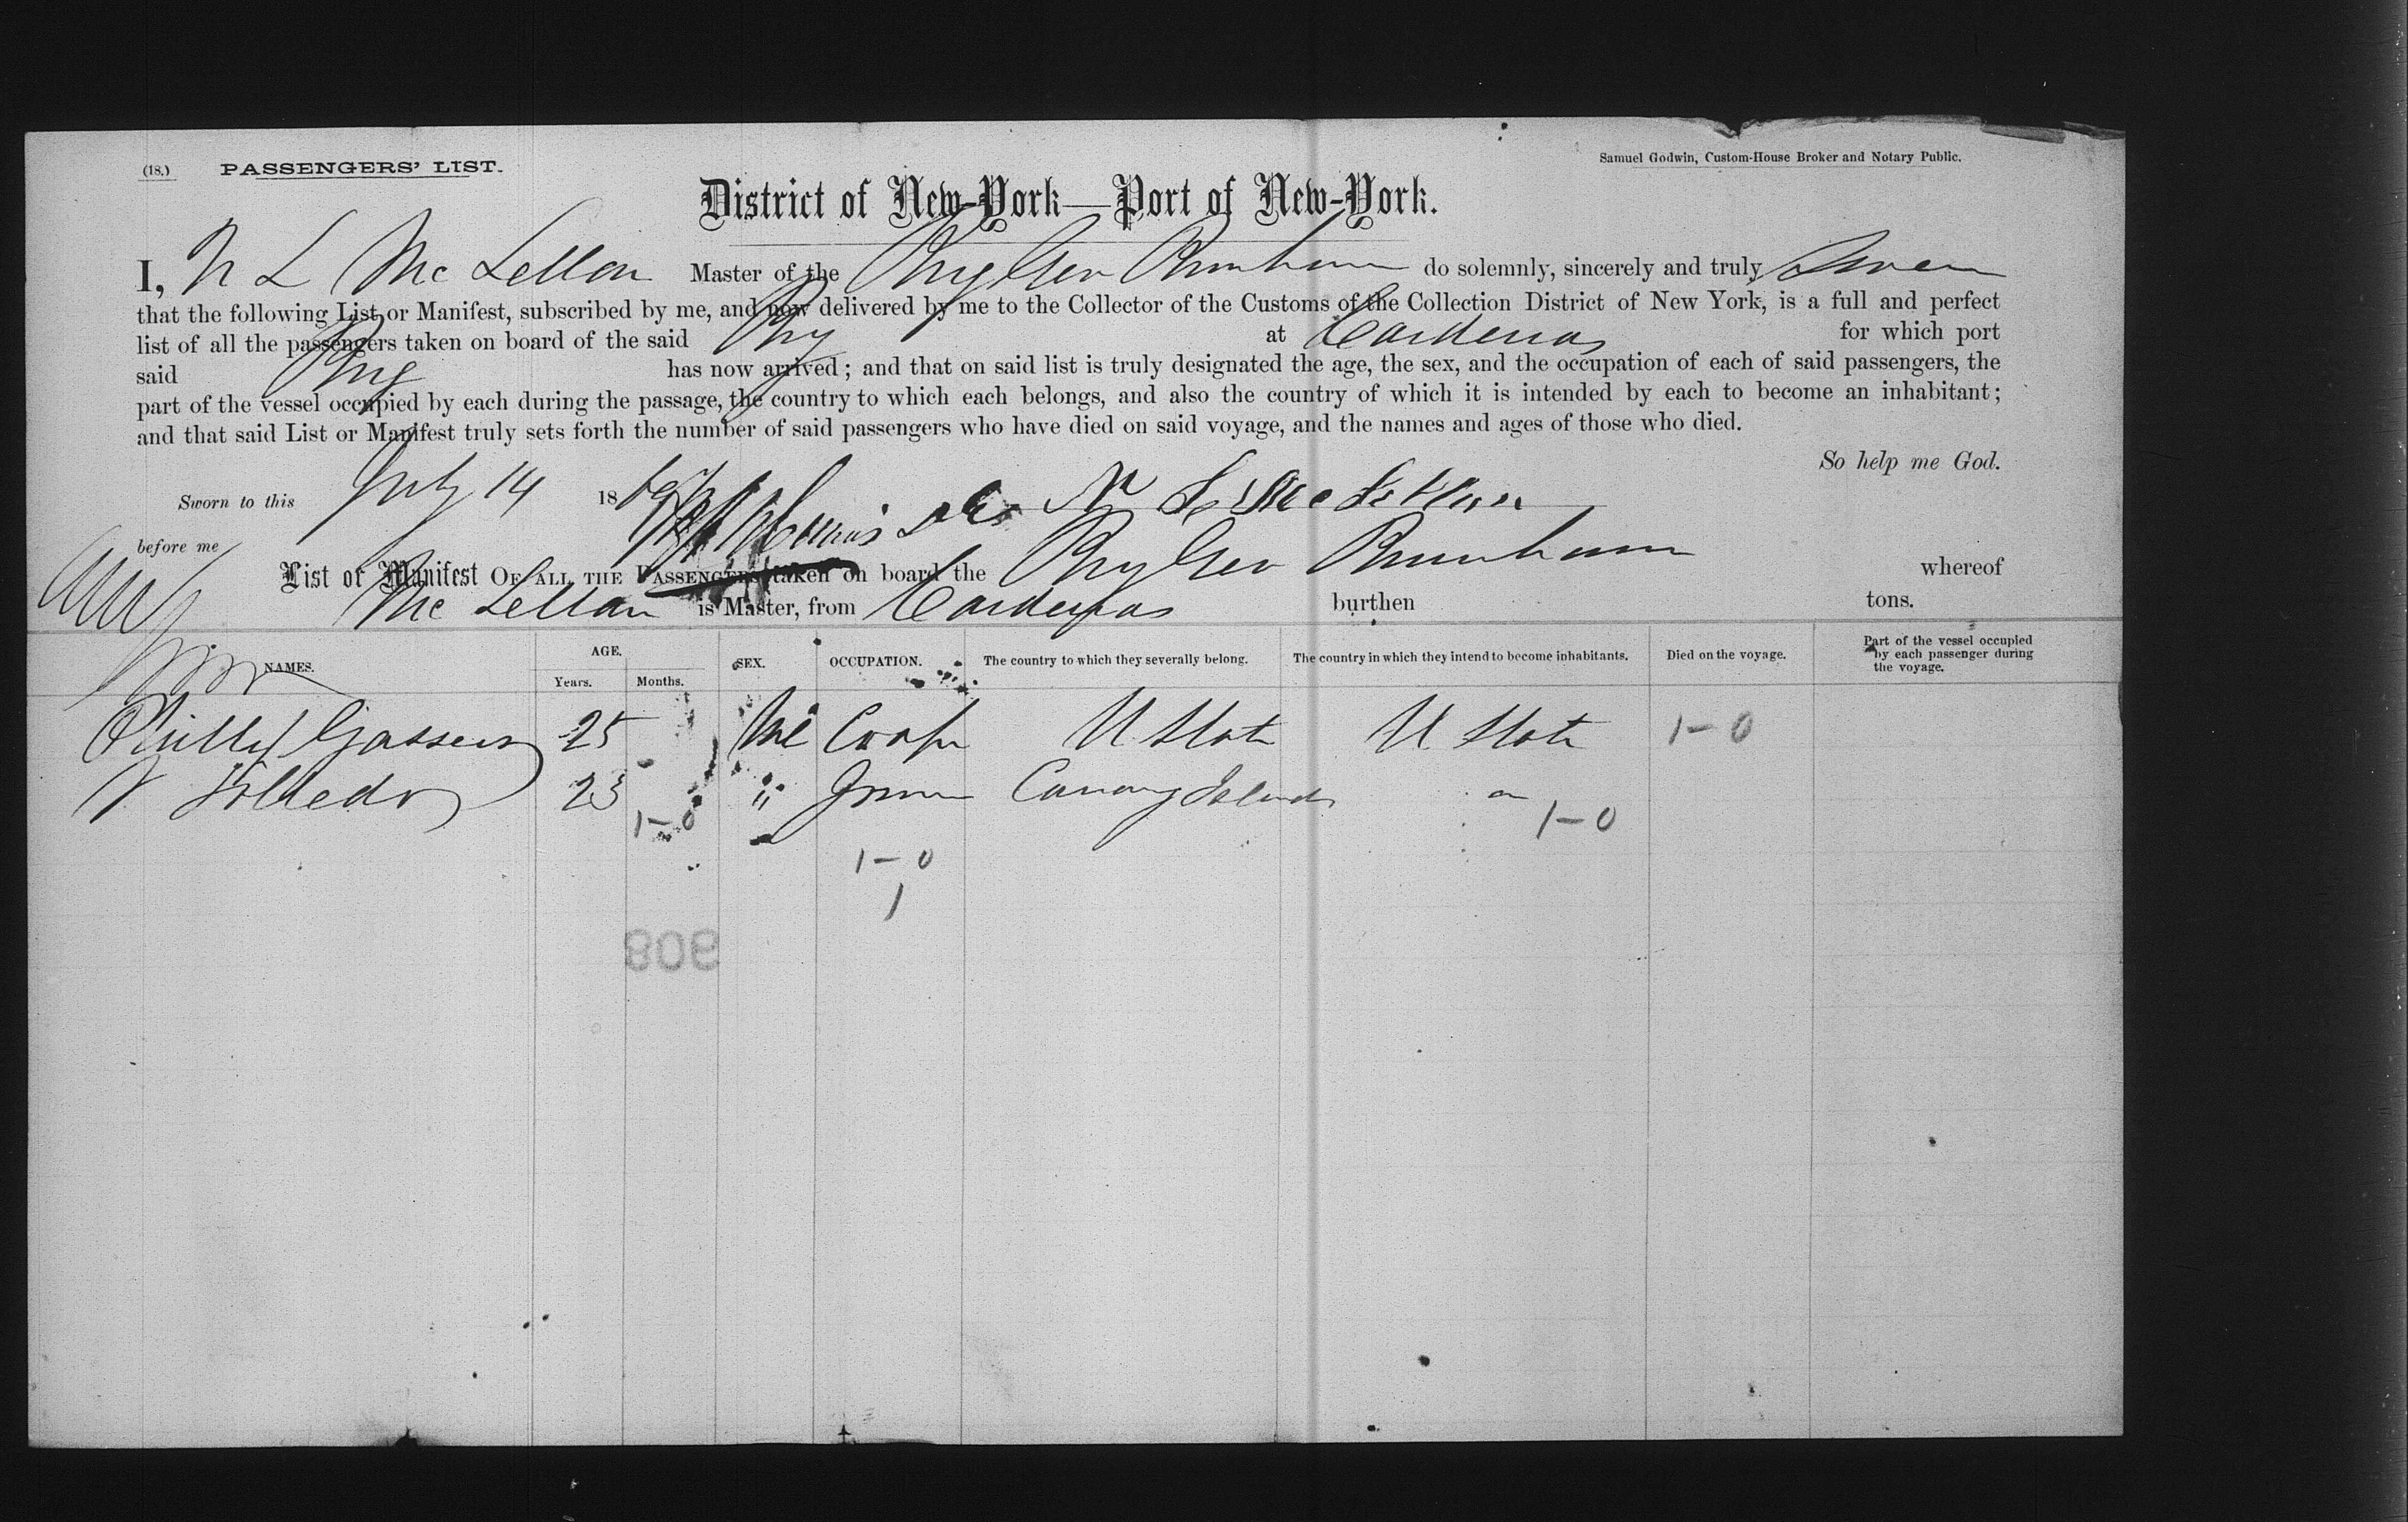 (18.) PASSENGERS' LIST.
Samuel Godwin, Custom-House Broker and Notary Public.
District of New-York—Port of New-York.
I, N L McLellan Master of the Brig Geo Burnham do solemnly, sincerely and truly Swear
that the following List or Manifest, subscribed by me, and now delivered by me to the Collector of the Customs of the Collection District of New York, is a full and perfect
list of all the passengers taken on board of the said Brig at Cardenas for which port
said Brig has now arrived; and that on said list is truly designated the age, the sex, and the occupation of each of said passengers, the
part of the vessel occupied by each during the passage, the country to which each belongs, and also the country of which it is intended by each to become an inhabitant;
and that said List or Manifest truly sets forth the number of said passengers who have died on said voyage, and the names and ages of those who died.
So help me God.
Sworn to this July 14 1869 N L McLellan
before me
List or Manifest OF ALL THE PASSENGERS taken on board the Brig Geo Burnham whereof
McLellan is Master, from Cardenas burthen tons.
NAMES. AGE. Years. Months. SEX. OCCUPATION. The country to which they severally belong. The country in which they intend to become inhabitants. Died on the voyage. Part of the vessel occupied by each passenger during the voyage.
25 Me U State U State 1-0
23 1-0 " Canary Islands 1-0
1-0
1
908